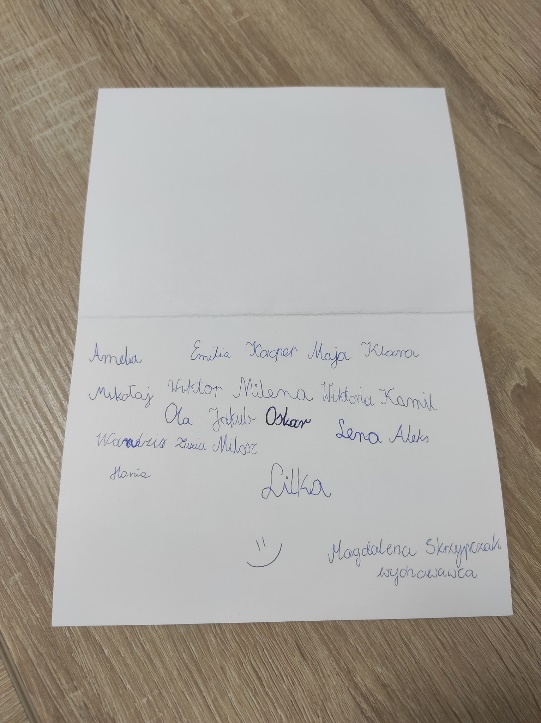 Amelia Emilia Kacper Maja Klara
Mikołaj Wiktor Milena Wiktoria Kamil
Ola Jakub Oskar Lena Aleks
Zuzia Miłosz
Hania
Lilka
Magdalena Skrzypczak
wychowawca